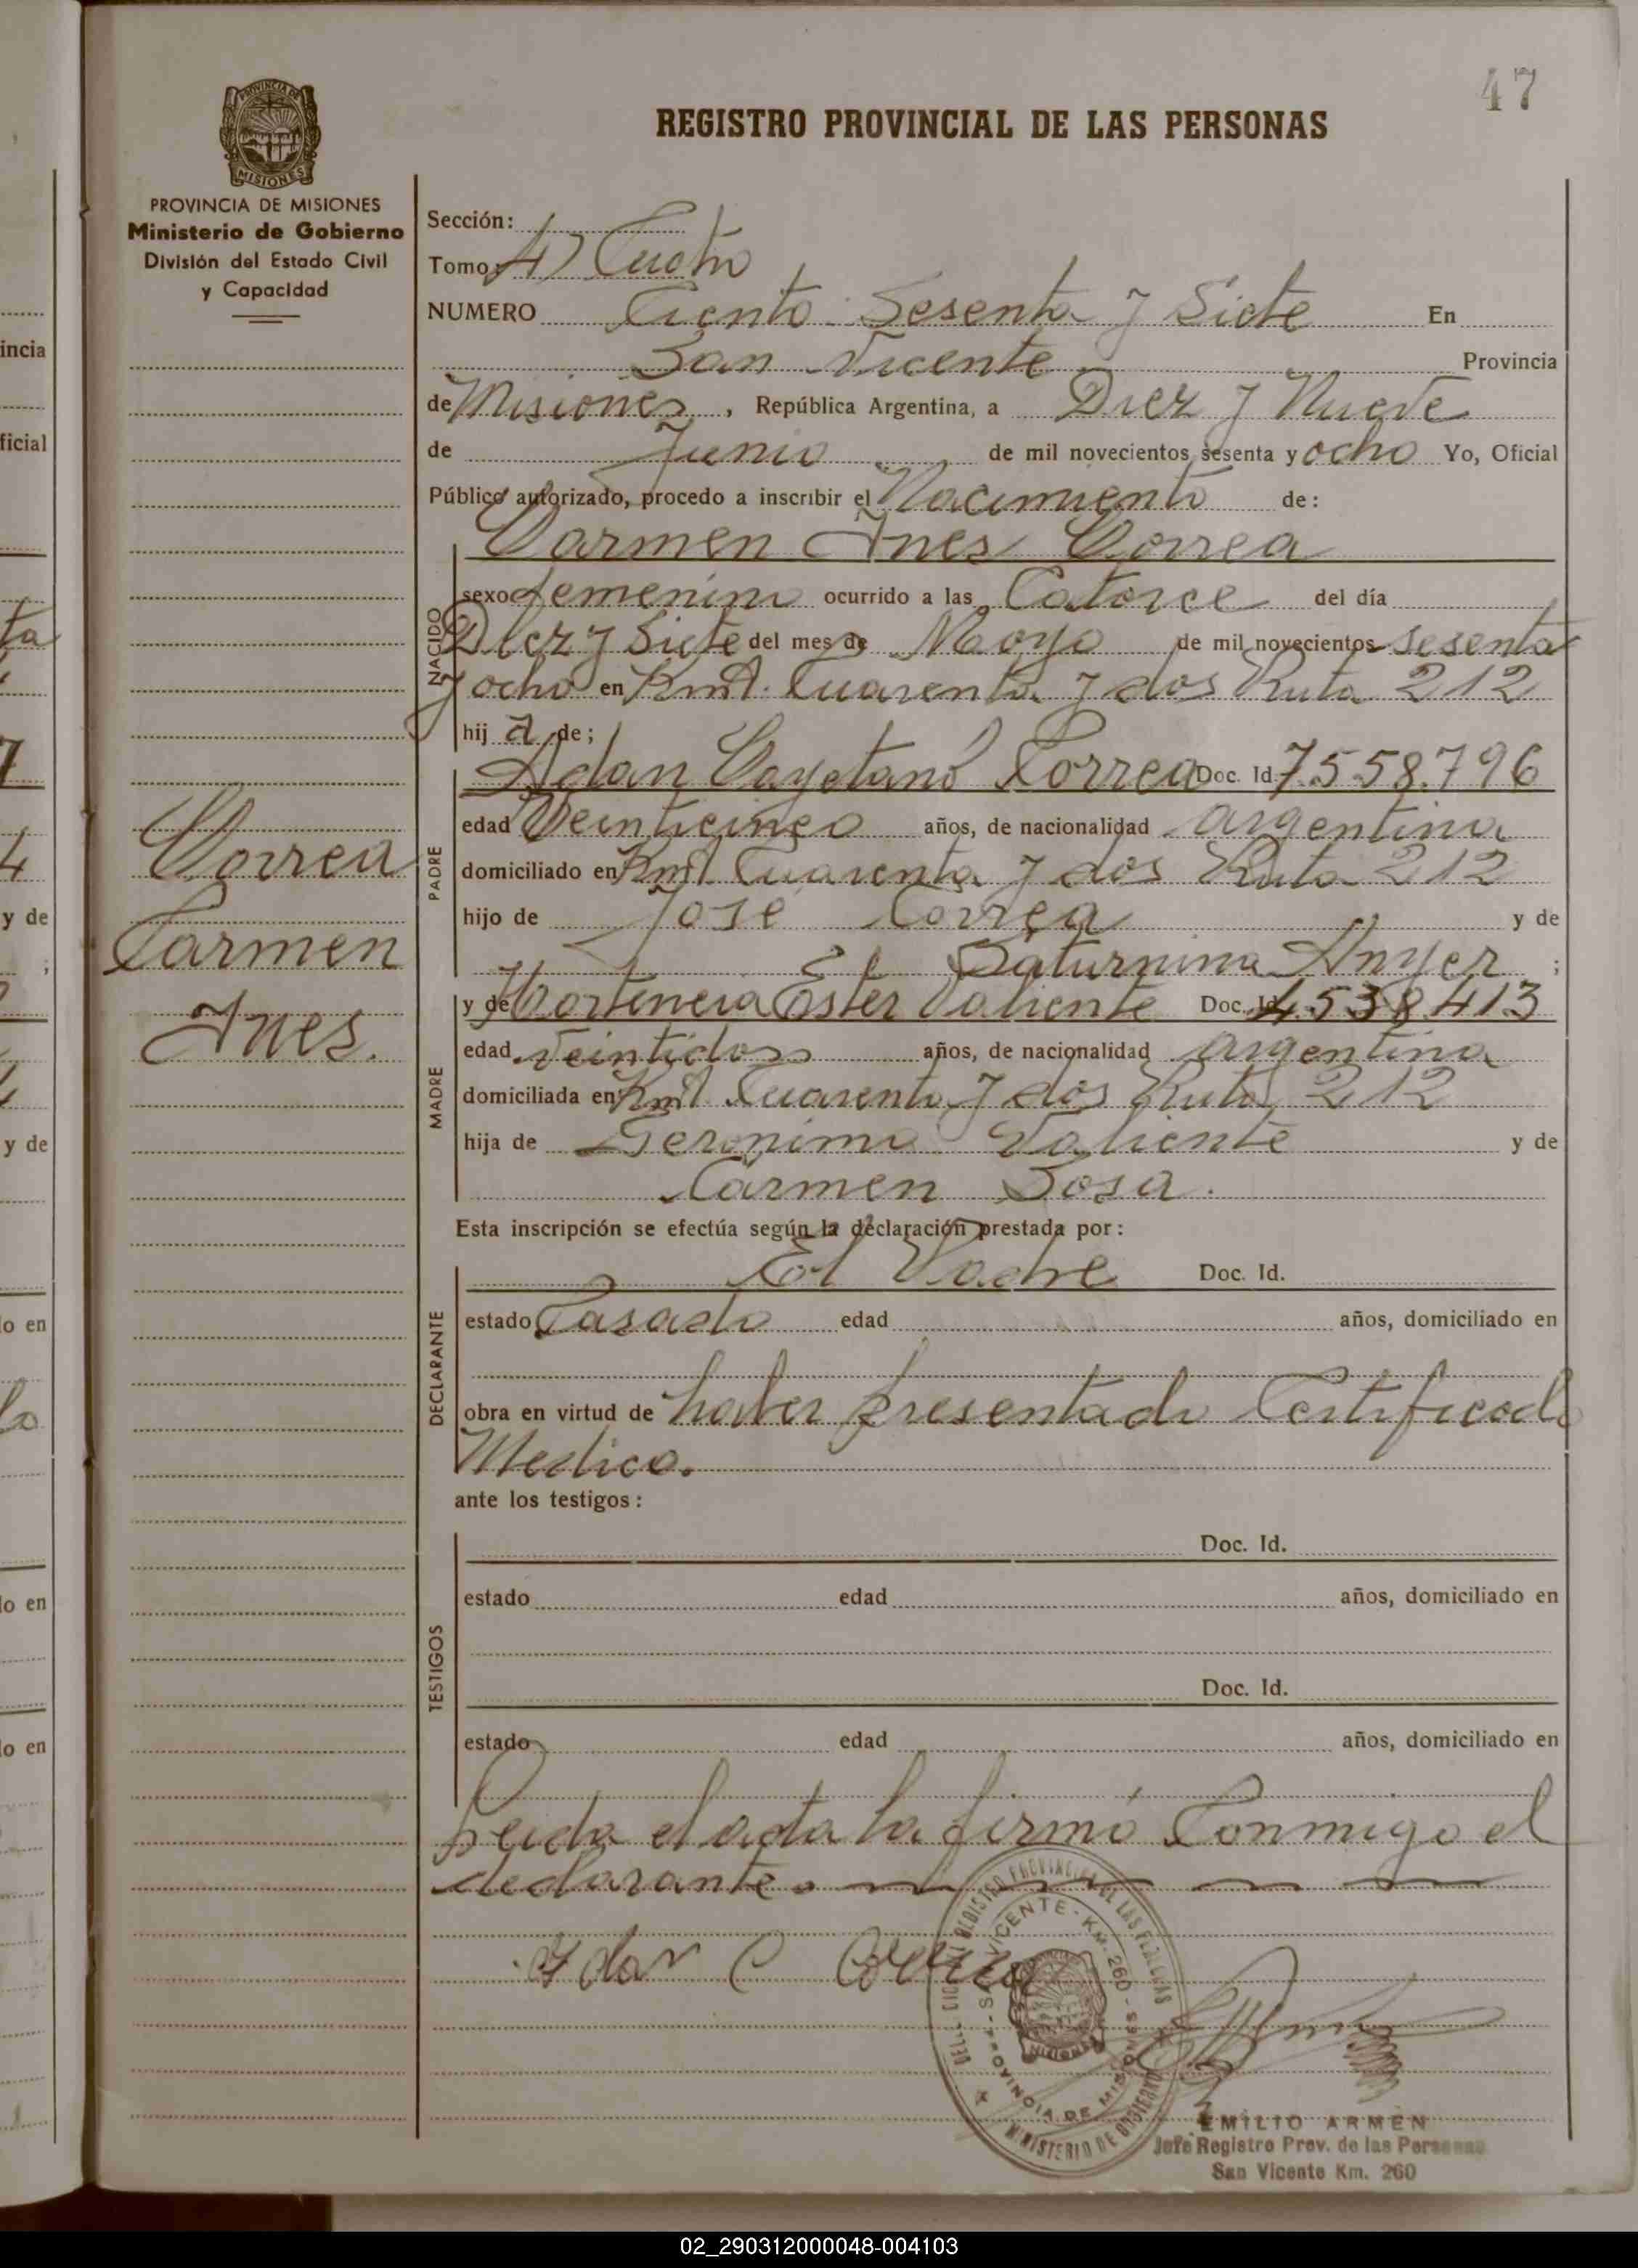 47
REGISTRO PROVINCIAL DE LAS PERSONAS
PROVINCIA DE MISIONES
Ministerio de Gobierno
División del Estado Civil
y Capacidad
Sección:
Tomo: 4) Cuarto
NUMERO Ciento Sesenta y Siete En
San Vicente Provincia
de Misiones, República Argentina, a Diez y Nueve
de Junio de mil novecientos sesenta y ocho Yo, Oficial
Público autorizado, procedo a inscribir el Nacimiento de:
Carmen Ines Correa
NACIDO
sexo femenino ocurrido a las Catorce del día
Diez y Siete del mes de Mayo de mil novecientos sesenta
y ocho en Kmt. Cuarenta y dos Ruta 212
hij a de;
PADRE
Adan Cayetano Correa Doc. Id. 7.558.796
edad Veinticinco años, de nacionalidad argentina
domiciliado en Kmt Cuarenta y dos Ruta 212
hijo de José Correa y de
Saturnina Anyer ;
MADRE
y de Hortencia Ester Valiente Doc. Id. 4.538.413
edad Veintidos años, de nacionalidad argentina
domiciliada en Kmt. Cuarenta y dos Ruta 212
hija de Geronimo Valiente y de
Carmen Sosa.
Correa
Carmen
Ines.
Esta inscripción se efectúa según la declaración prestada por:
DECLARANTE
El Padre Doc. Id.
estado Casado edad años, domiciliado en
obra en virtud de haber presentado Certificado
Medico.
ante los testigos:
TESTIGOS
Doc. Id.
estado edad años, domiciliado en
Doc. Id.
estado edad años, domiciliado en
Leida el acta la firmó Conmigo el
declarante.
Adan C Correa
SAN VICENTE - KM. 260 - PROVINCIA DE MISIONES
MINISTERIO DE GOBIERNO
EMILIO ARMEN
Jefe Registro Prov. de las Personas
San Vicente Km. 260
02_290312000048-004103